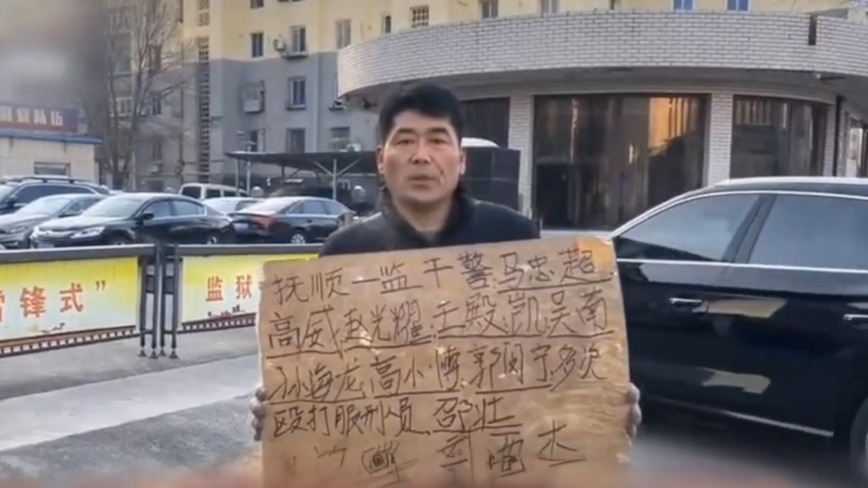 雷锋式”
监狱
抚顺一监干警马忠超
高威赵光耀王殿凯吴南
孙海龙高小博郭闵宁多次
殴打服刑人员邵壮